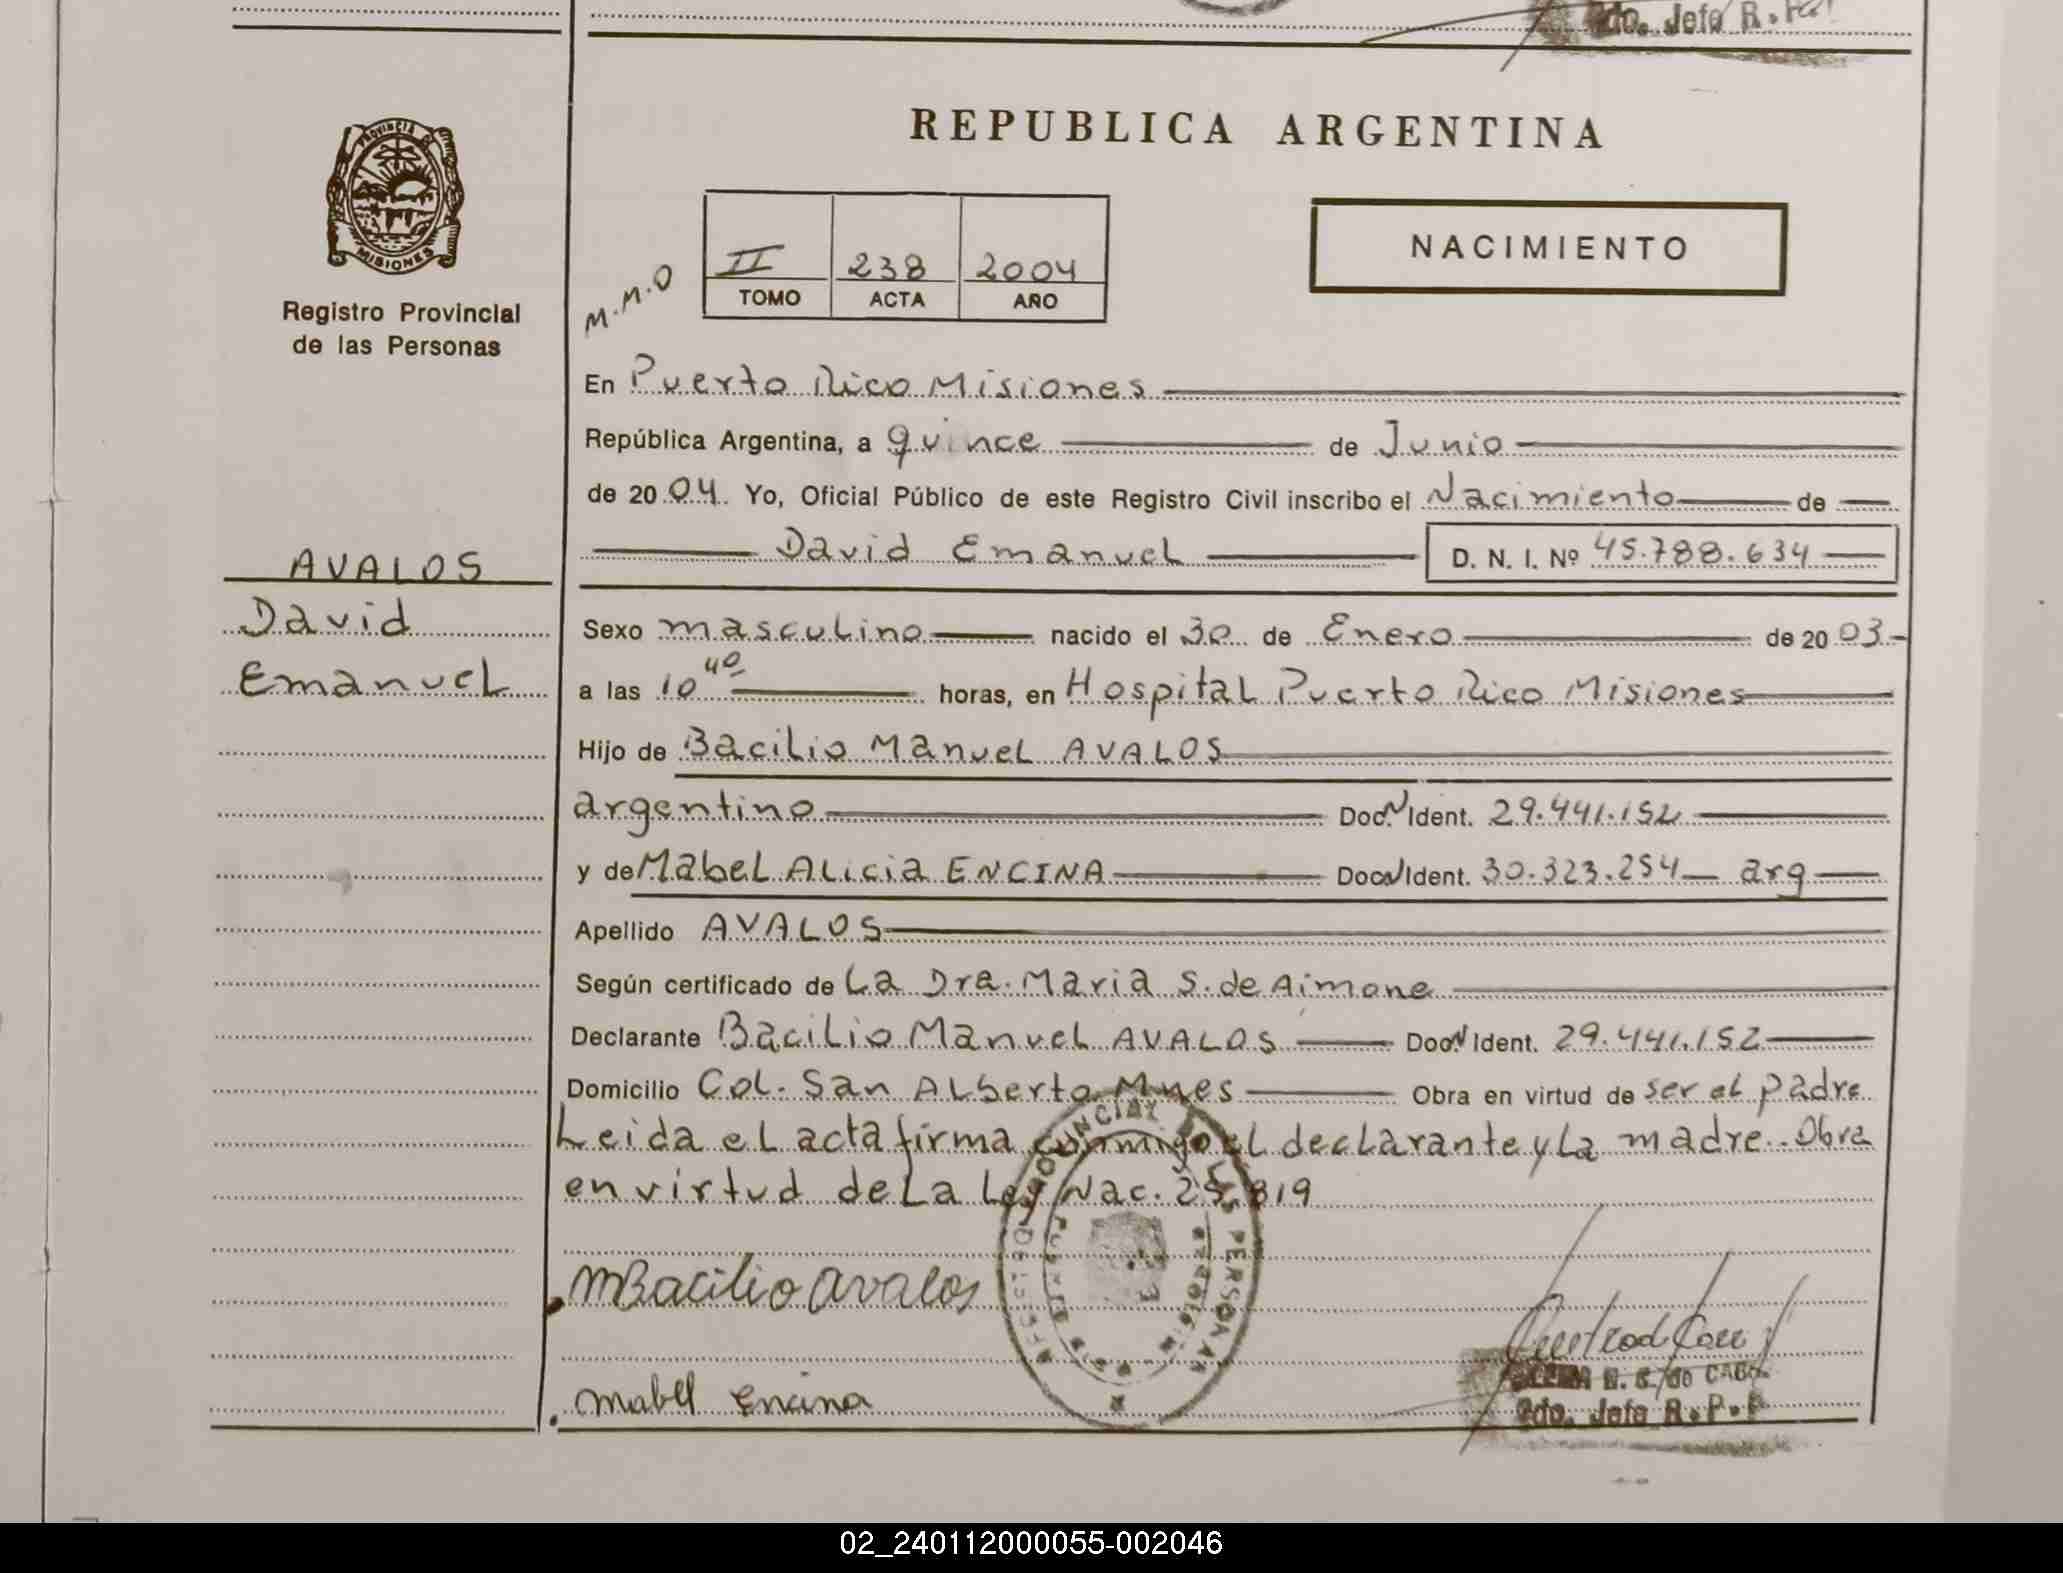 2do. Jefe R.P.
REPUBLICA ARGENTINA
PROVINCIA
MISIONES
Registro Provincial
de las Personas
M.M.O
II 238 2004
TOMO ACTA AÑO
NACIMIENTO
En Puerto Rico Misiones
República Argentina, a quince de Junio
de 2004 Yo, Oficial Público de este Registro Civil inscribo el Nacimiento de
David Emanuel D. N. I. Nº 45.788.634
AVALOS
David
Emanuel
Sexo masculino nacido el 30 de Enero de 2003
a las 10 40 horas, en Hospital Puerto Rico Misiones
Hijo de Bacilio Manuel AVALOS
argentino Doc. N Ident. 29.441.152
y de Mabel Alicia ENCINA Doc. N Ident. 30.323.254 arg
Apellido AVALOS
Según certificado de La Dra. Maria S. de Aimone
Declarante Bacilio Manuel AVALOS Doc. N Ident. 29.441.152
Domicilio Col. San Alberto Mnes Obra en virtud de ser el padre
Leida el acta firma conmigo el declarante y la madre. Obra
en virtud de La Ley Nac. 25.819
MBacilio avalos
Mabel Encina
2do. Jefe R.P.P
02_240112000055-002046